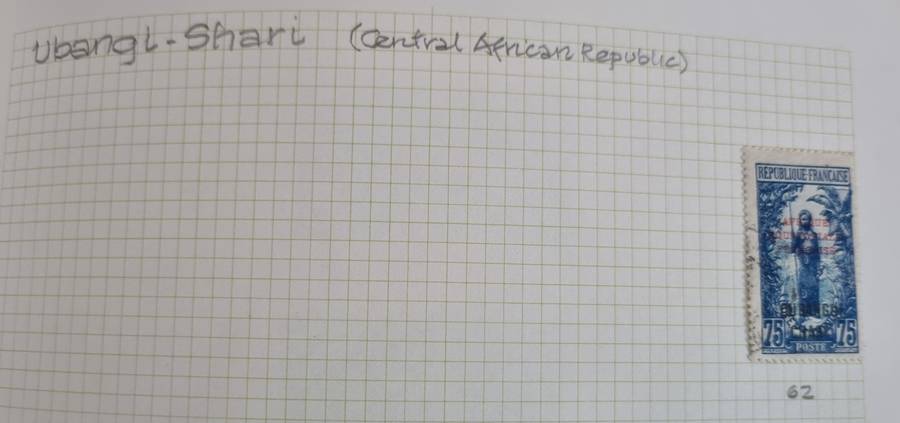 Ubangi-Shari (Central African Republic)
REPUBLIQUE FRANCAISE
AFRIQUE
OUBANGUI
CHARI
75 75
POSTE
62